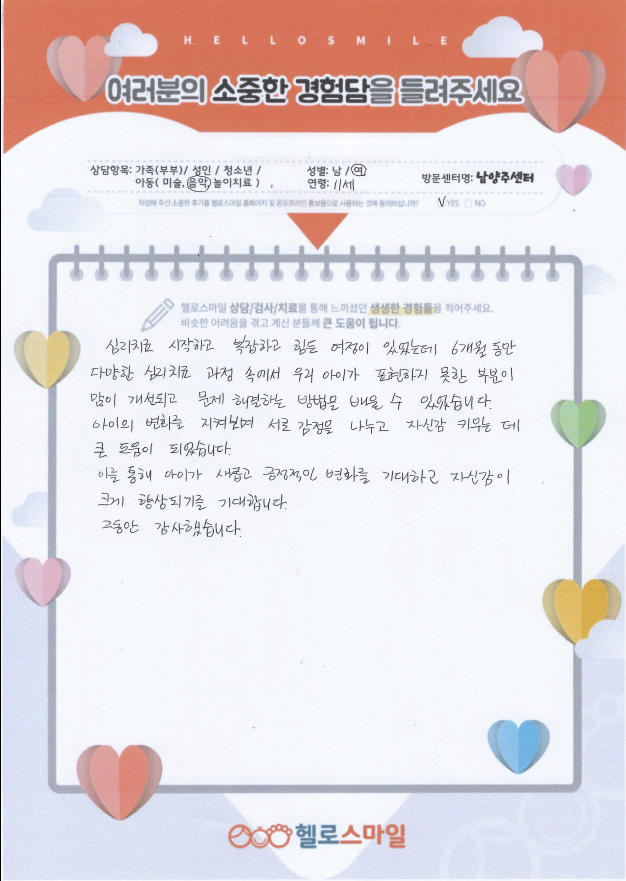 HELLOSMILE
여러분의 소중한 경험담을 들려주세요
상담항목: 가족(부부)/ 성인 / 청소년 /
아동( 미술, 음악, 놀이치료 )
성별: 남 / 여
연령: 11세
방문센터명: 남양주센터
작성해 주신 소중한 후기를 헬로스마일 홈페이지 및 온오프라인 홍보용으로 사용하는 것에 동의하십니까? V YES □ NO
헬로스마일 상담/검사/치료를 통해 느끼셨던 생생한 경험들을 적어주세요.
비슷한 어려움을 겪고 계신 분들께 큰 도움이 됩니다.
심리치료 시작하고 복잡하고 힘든 여정이 있었는데 6개월 동안
다양한 심리치료 과정 속에서 우리 아이가 표현하지 못한 부분이
많이 개선되고 문제 해결하는 방법을 배울 수 있었습니다.
아이의 변화를 지켜보며 서로 감정을 나누고 자신감 키우는 데
큰 도움이 되었습니다.
이를 통해 아이가 새롭고 긍정적인 변화를 기대하고 자신감이
크게 향상되기를 기대합니다.
그동안 감사했습니다.
헬로스마일